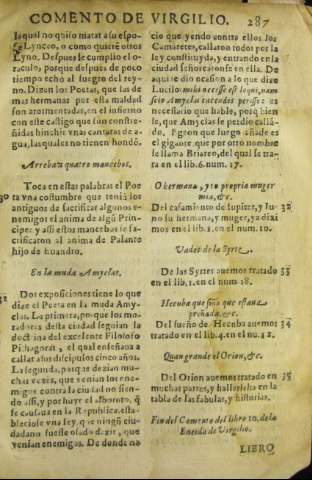 COMENTO DE VIRGILIO. 287
la qual no quiso matar a su espo-
so Lynceo, o como quiere otros
Lyno. Despues se cumplio el o-
raculo, porque despues de poco
tiempo echò al suegro del rey-
no. Dizen los Poetas, que las de
mas hermanas por esta maldad
son atormentadas, en el infierno
con este castigo que san
hinchir vnas cantaros de a-
gua, las quales no tienen hondō.
Arrebata quatro mancebos.
Toca en estas palabras el Poe
30
ta vna costumbre que teniā los
antiguos de sacrificar algunos e-
nemigos el anima de algū Prin-
cipe: y assi estos mancebos se sa-
crificaron al anima de Palante
hijo de Euandro.
En la muda Amyclas.
Dos exposiciones tiene lo que
dize el Poeta en la muda Amy-
clas. La primera, porque los mo-
radores desta ciudad seguian la
doctrina del excelente Filosofo
Pithagoras, el qual enseñaua a
callar a sus discipulos cinco años.
La segunda, porque dezian mu-
chas vezes, que venian los ene-
migos contra la ciudad no sien-
do assi, y por huyr el alboroto, q̄
se causaua en la Republica, esta-
bleciose vna ley, que ningū ciu-
dadano fuesse osado dezir, que
venian enemigos. De donde na-
cio que yendo contra ellos los
Camaretes, callaron todos por la
ley constituyda, y entrando en la
ciudad señorearonse en ella. De
aqui le dio ocasion a lo que dize
Lucilo: mihi necesse est loqui, nam
scio Amyclas tacendo perisse: es
necessario que hable, porq̄ bien
se, que Amyclas se perdio callā-
do. Egeon que luego añade es
el gigante, que por otro nombre
se llama Briareo, del qual se tra-
ta en el lib. 6. num. 17.
O hermana, y tu propria muger
mia, &c.
Del casamiento de Iupiter, y Iu-
32
no su hermana, y muger, ya dixi
mos en el lib. 1. en el num. 10.
Vados de la Syrte.
De las Syrtes auemos tratado
33
en el lib. 1. en el num. 18.
Hecuba que soñò que estaua
preñada, &c.
Del sueño de Hecuba auemos
34
tratado en el lib. 4. en el nu. 12.
Quan grande el Orion, &c.
Del Orion auemos tratado en
35
muchas partes, y hallarseha en la
tabla de las fabulas, y historias.
Fin del Comento del libro 10. de la
Eneida de Virgilio.
LIBRO